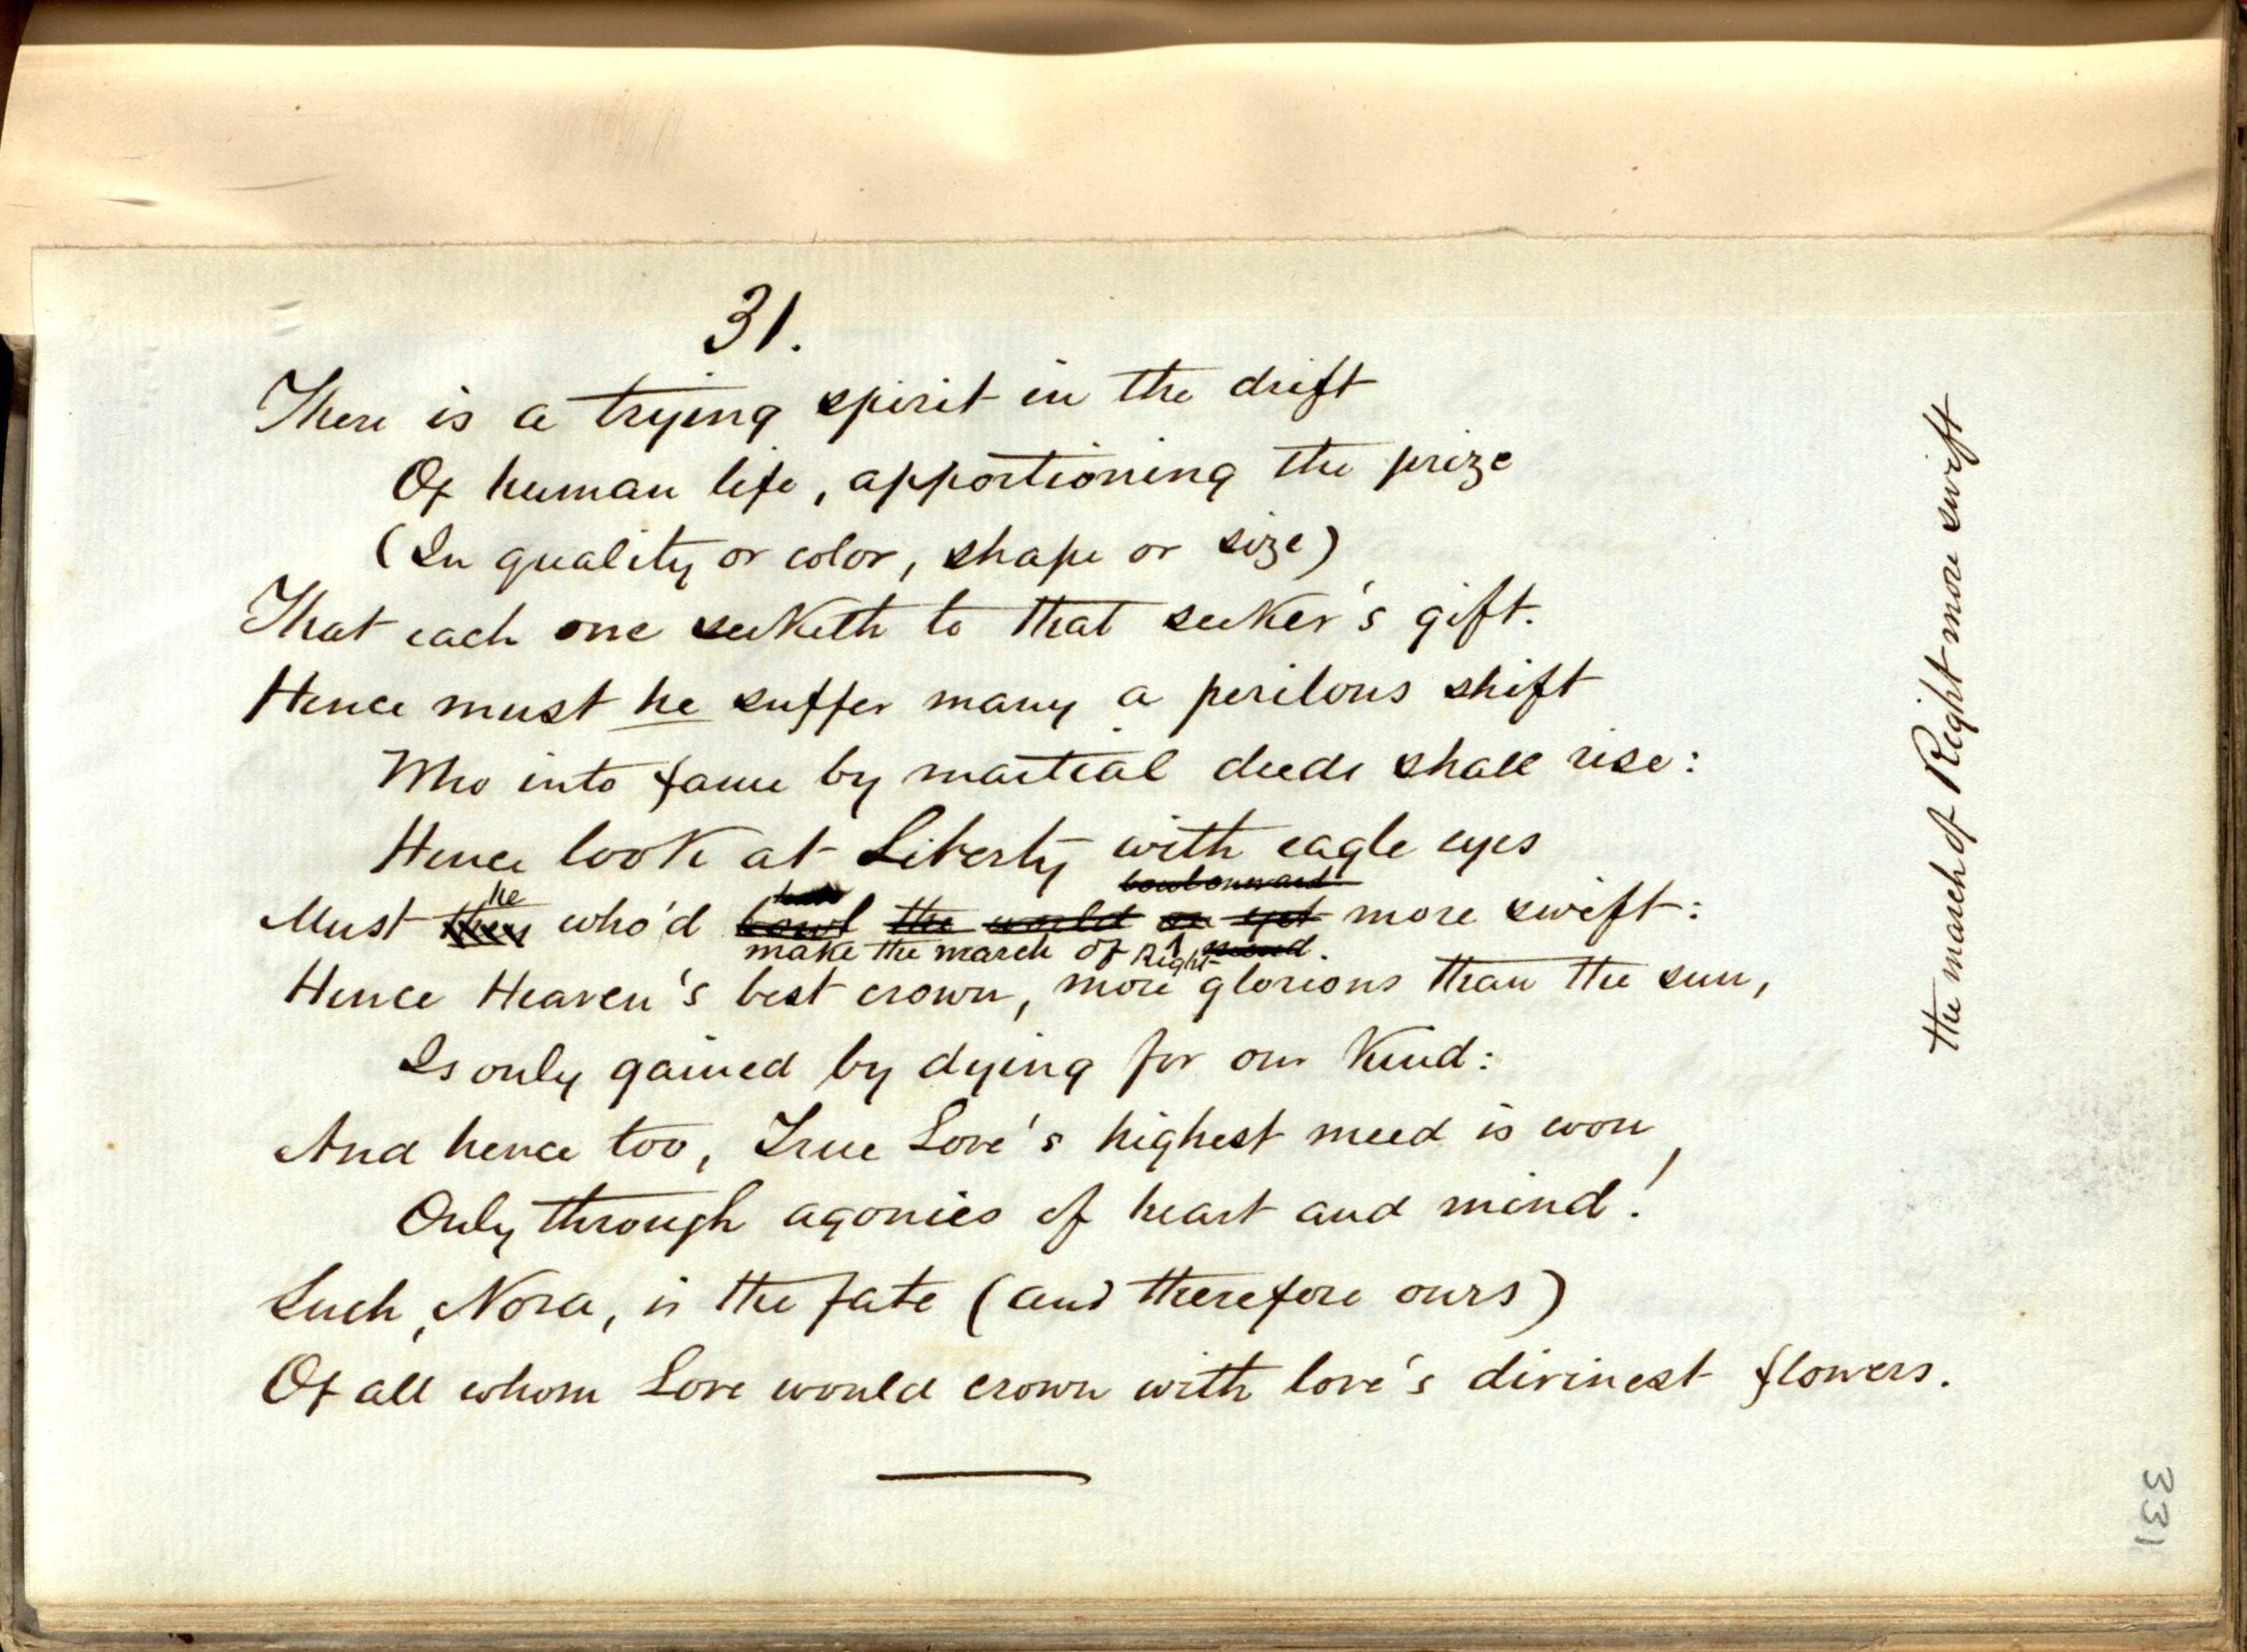 31.
There is a trying spirit in the drift
Of human life, apportioning the prize
(In quality or color, shape or size)
That each one seeketh to that seeker's gift.
Hence must he suffer many a perilous shift
Who into fame by martial deeds shall rise:
Hence look at Liberty with eagle eyes
he bowl onward
Must they who'd bowl the world on yet more swift:
make the march of Right
Hence Heaven's best crown, more glorious than the sun,
Is only gained by dying for our Kind:
And hence too, True Love's highest meed is won,
Only through agonies of heart and mind!
Such, Nora, is the fate (and therefore ours)
Of all whom Love would crown with love's divinest flowers.
the march of Right more swift
331